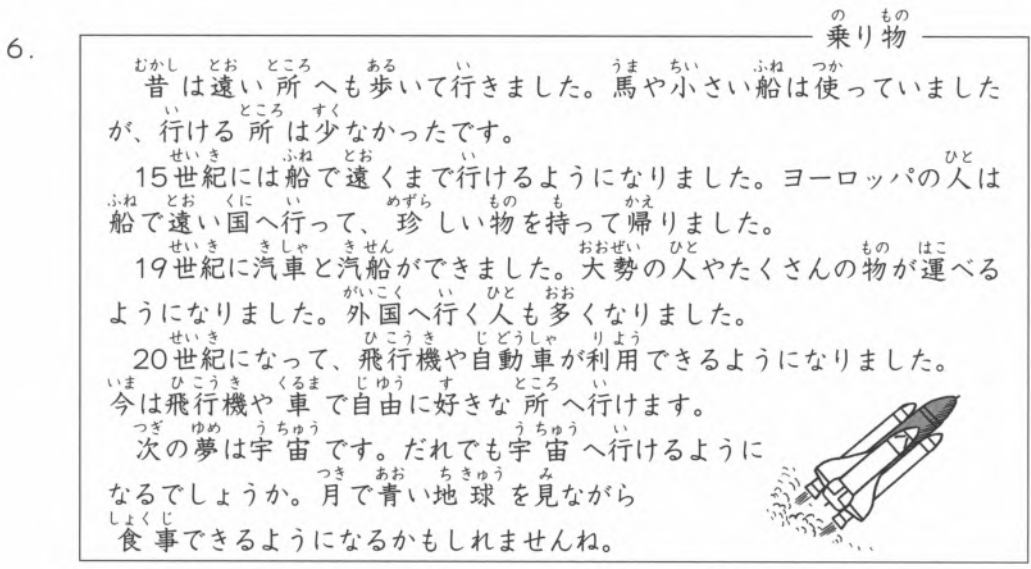 6.
乗り物
昔は遠い所へも歩いて行きました。馬や小さい船は使っていました
が、行ける所は少なかったです。
15世紀には船で遠くまで行けるようになりました。ヨーロッパの人は
船で遠い国へ行って、珍しい物を持って帰りました。
19世紀に汽車と汽船ができました。大勢の人やたくさんの物が運べる
ようになりました。外国へ行く人も多くなりました。
20世紀になって、飛行機や自動車が利用できるようになりました。
今は飛行機や車で自由に好きな所へ行けます。
次の夢は宇宙です。だれでも宇宙へ行けるように
なるでしょうか。月で青い地球を見ながら
食事できるようになるかもしれませんね。